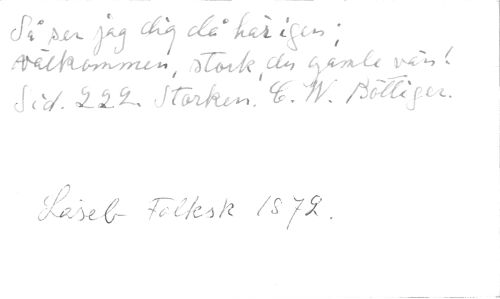 Så ser jag dig då här igen;
välkommen, stork, du gamle vän!
Sid. 222. Storken. C. W. Böttiger.
Läseb Folksk 1872.